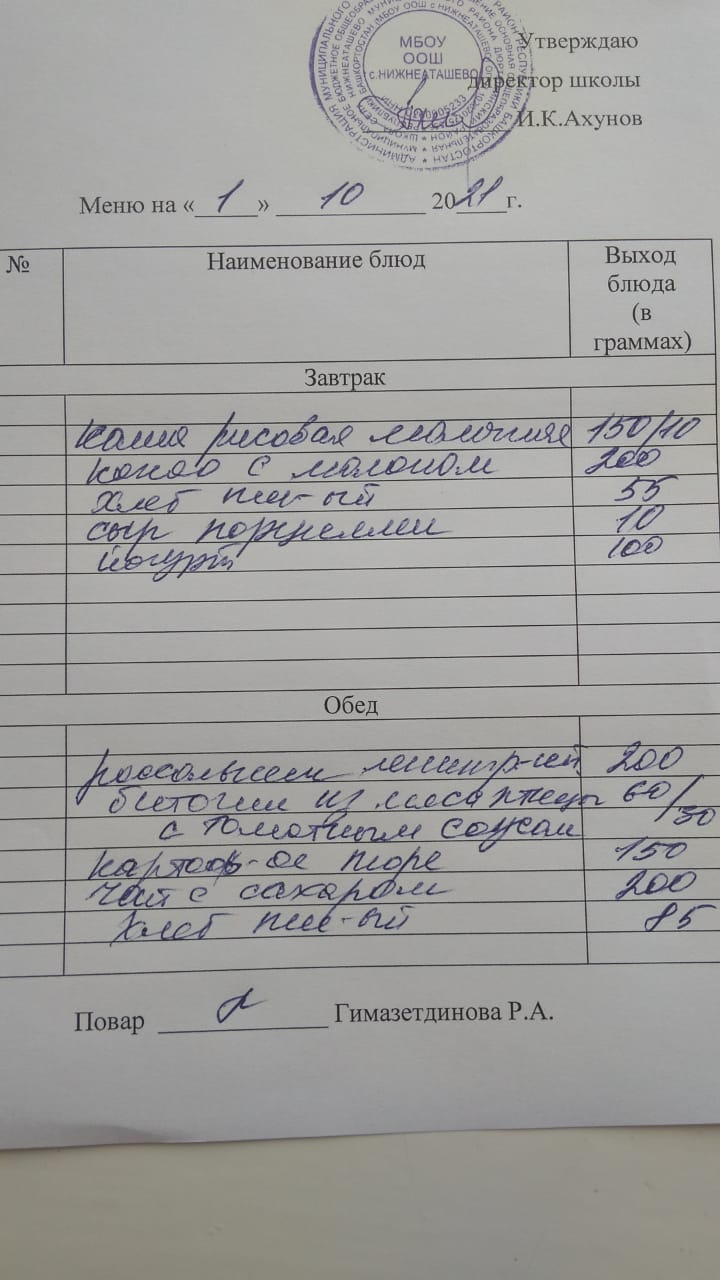 МБОУ
ООШ
с.НИЖНЕАТАШЕВО
Утверждаю
директор школы
И.К.Ахунов
Меню на «1» 10 2021г.
№ Наименование блюд Выход блюда (в граммах)
Завтрак
каша рисовая молочная 150/10
какао с молоком 200
хлеб пш-ый 55
сыр порциями 10
йогурт 100
Обед
рассольник ленингр-ий 200
биточки из мяса птицы 60/30
с томатным соусом
картоф-ое пюре 150
чай с сахаром 200
хлеб пш-ый 85
Повар Гимазетдинова Р.А.